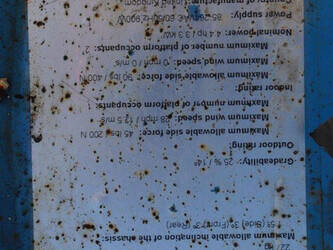 Maximum allowable inclination of the chassis:
(Side) 3°(Front) 3°(Rear)
Gradeability: 25 % / 14°
Outdoor rating
Maximum allowable side force: 45 lbs / 200 N
Maximum wind speed: 28 mph / 12.5 m/s
Maximum number of platform occupants:
Indoor rating:
Maximum allowable side force: 90 lbs / 400N
Maximum wind speed: 0 mph / 0 m/s
Maximum number of platform occupants: 2
Nominal power: 4.4 hp / 3.3 kW
Power supply: 900W
Country of manufacture: United Kingdom